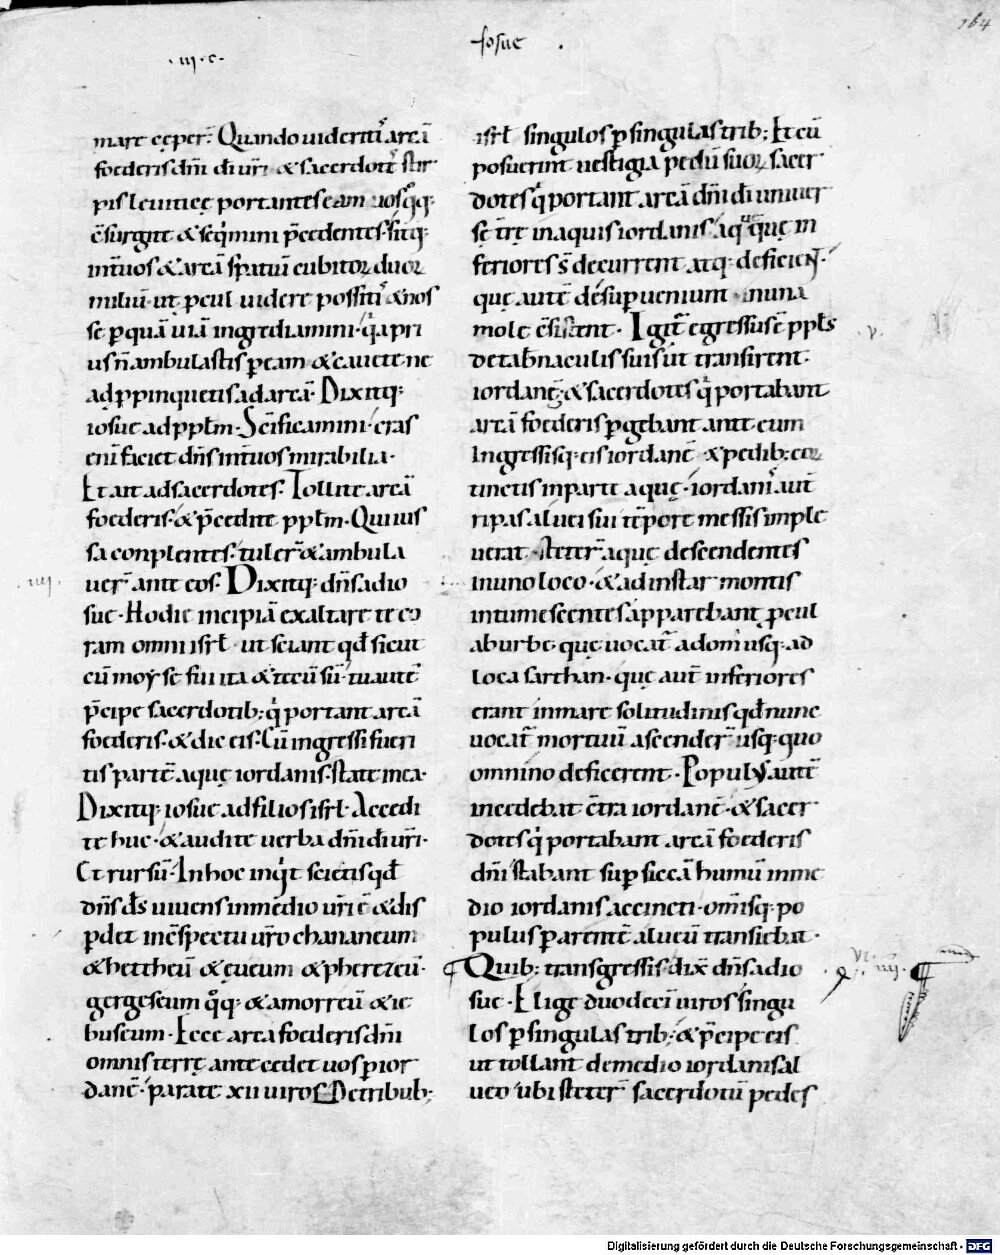 164
Iosue
.iii.c.
mare cęper̄. Quando uideritꝰ arcā
foederis dn̄i d̄i ur̄i & sacerdotꝭ stir
pis leuiticę portantes eam uos qͦq;
c̄surgite & seqͥmini p̄cedentes. sitq;
int̄ uos & arcā spatiū cubitoꝝ duoꝝ
miliū. ut ꝓcul uidere possitꝰ & nos
se p quā uiā ingrediamini. qͥa pri
us n̄ ambulastis p eam & cauete ne
adꝓpinquetis ad arcā. Dixitq;
iosue ad ppł̄m. Sc̄ificamini. cras
eni faciet dn̄s int̄ uos mirabilia.
Et ait ad sacerdotes. Tollite arcā
foederis. & p̄cedite ppł̄m. Qui ius
sa conplentes. tuler̄ & ambula
uer̄ ante eos. Dixitq; dn̄s ad io
.iiii.
sue. Hodie incipiā exaltare te co
ram omni isrł. ut sciant qd̄ sicut
cū moyse fui ita & tecū sū. tu autē
p̄cipe sacerdotib; qͥ portant arcā
foederis. & dic eis. Cū ingressi fueri
tis partē aquę iordanis. state in ea.
Dixitq; iosue ad filios isrł. Accedi
te huc. & audite uerba dn̄i d̄i ur̄i.
Et rursū. In hoc inqͥt scietis qd̄
dn̄s d̄s uiuens in medio ur̄i ē & dis
pdet in c̄spectu ur̄o chananeum
& hettheū & eueum & pherezeū.
gergeseum qͦq; & amorreū & ie
buseum. Ecce arca foederis dn̄i
omnis terrę antecedet uos p ior
danē. parate xii uiros De tribub;
isrł singulos p singulas trib; Et cū
posuerint uestigia pedū suoꝝ sacer
dotes qͥ portant arcā dn̄i d̄i uniuer
sę t̄rę in aquis iordanis. aq̄ quę in
feriores s̄ decurrent atq; deficient.
quę autē desup ueniunt in una
mole c̄sistent. Igit̄ egressus ē ppł̄s
.v.
de tab̄naculis suis ut transirent
iordanē. & sacerdotes qͥ portabant
arcā foederis pgebant ante eum
Ingressisq; eis iordanē & pedib; eoꝝ
tinctis in parte aquę. iordanꝰ aut̄
ripas aluei sui tēpore messis imple
uerat. steter̄ aquę descendentes
in uno loco. & ad instar montis
intumescentes apparebant ꝓcul
ab urbe quę uocat̄ adom usq; ad
loca sarthan. quę aut̄ inferiores
erant in mare solitudinis qd̄ nunc
uocat̄ mortuū descender̄ usq; quo
omnino deficerent. Populus autē
incedebat c̄tra iordanē. & sacer
dotes qͥ portabant arcā foederis
dn̄i stabant sup siccā humū in me
dio iordanis accincti. omīsq; po
pulus p arentē alueū transiebat.
Quib; transgressis dix̄ dn̄s ad io
sue. Elige duodeci uiros singu
los p singulas trib; & p̄cipe eis
ut tollant de medio iordanis al
ueo ubi steter̄ sacerdotū pedes
Digitalisierung gefördert durch die Deutsche Forschungsgemeinschaft - DFG